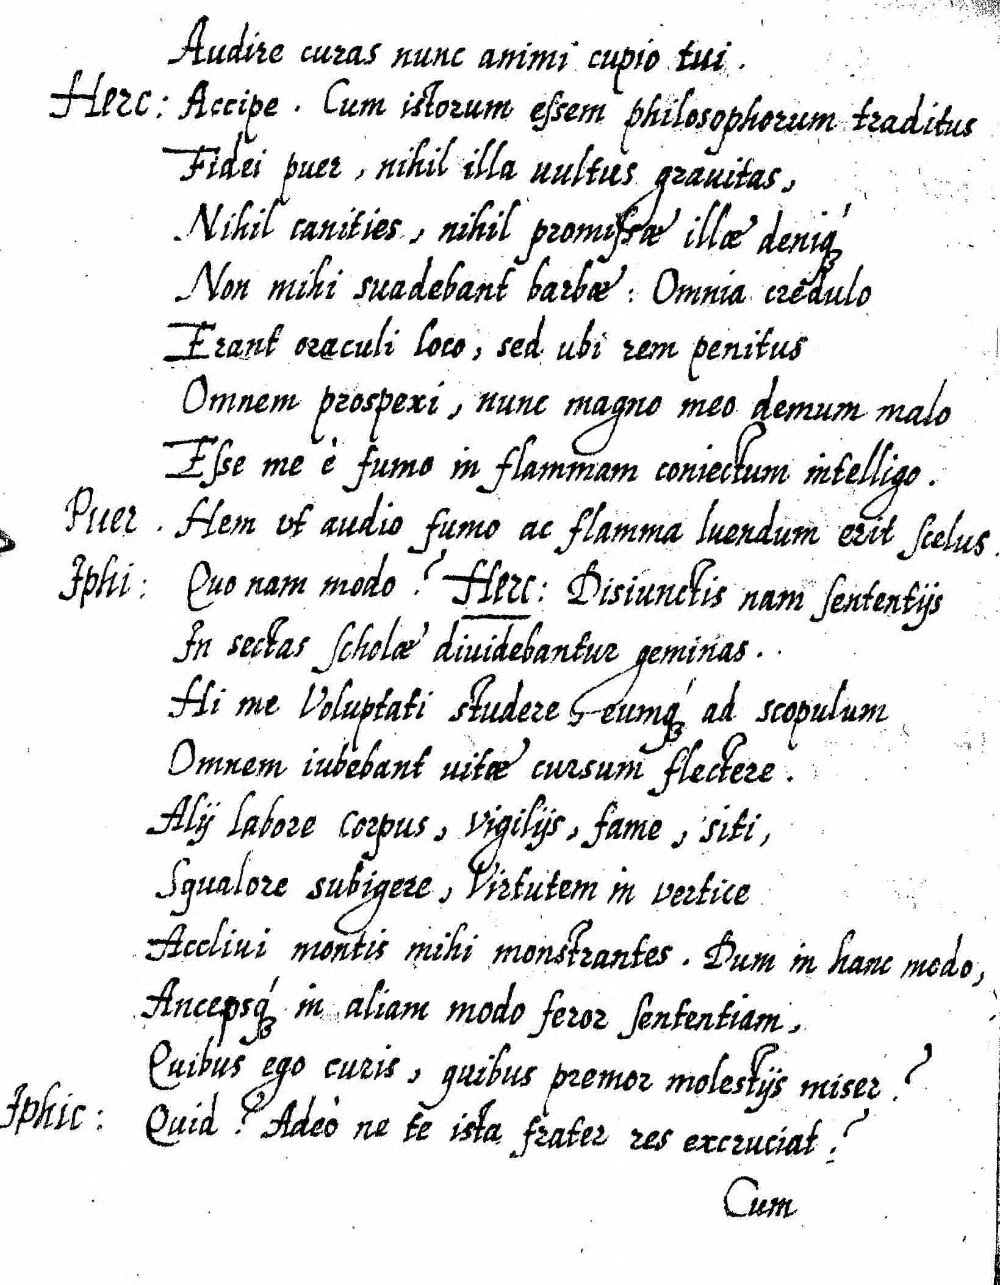 Audire curas nunc animi cupio tui.
Herc: Accipe. Cum istorum essem philosophorum traditus
Fidei puer, nihil illa uultus grauitas,
Nihil canities, nihil promissæ illæ deniq́ꝫ
Non mihi suadebant barbæ: Omnia credulo
Erant oraculi loco, sed ubi rem penitus
Omnem prospexi, nunc magno meo demum malo
Esse me è fumo in flammam coniectum intelligo.
Puer. Hem vt audio fumo ac flamma luendum erit scelus.
Iphi: Quo nam modo? Herc: Disiunctis nam sententijs
In sectas scholæ diuidebantur geminas.
Hi me Voluptati studere, eumq́ꝫ ad scopulum
Omnem iubebant uitæ cursum flectere.
Alij labore corpus, vigilijs, fame, siti,
Squalore subigere, Virtutem in vertice
Accliui montis mihi monstrantes. Dum in hanc modo,
Ancepsq́ꝫ in aliam modo feror sententiam,
Quibus ego curis, quibus premor molestijs miser?
Iphic: Quid? Adeò ne te ista frater res excruciat?
Cum